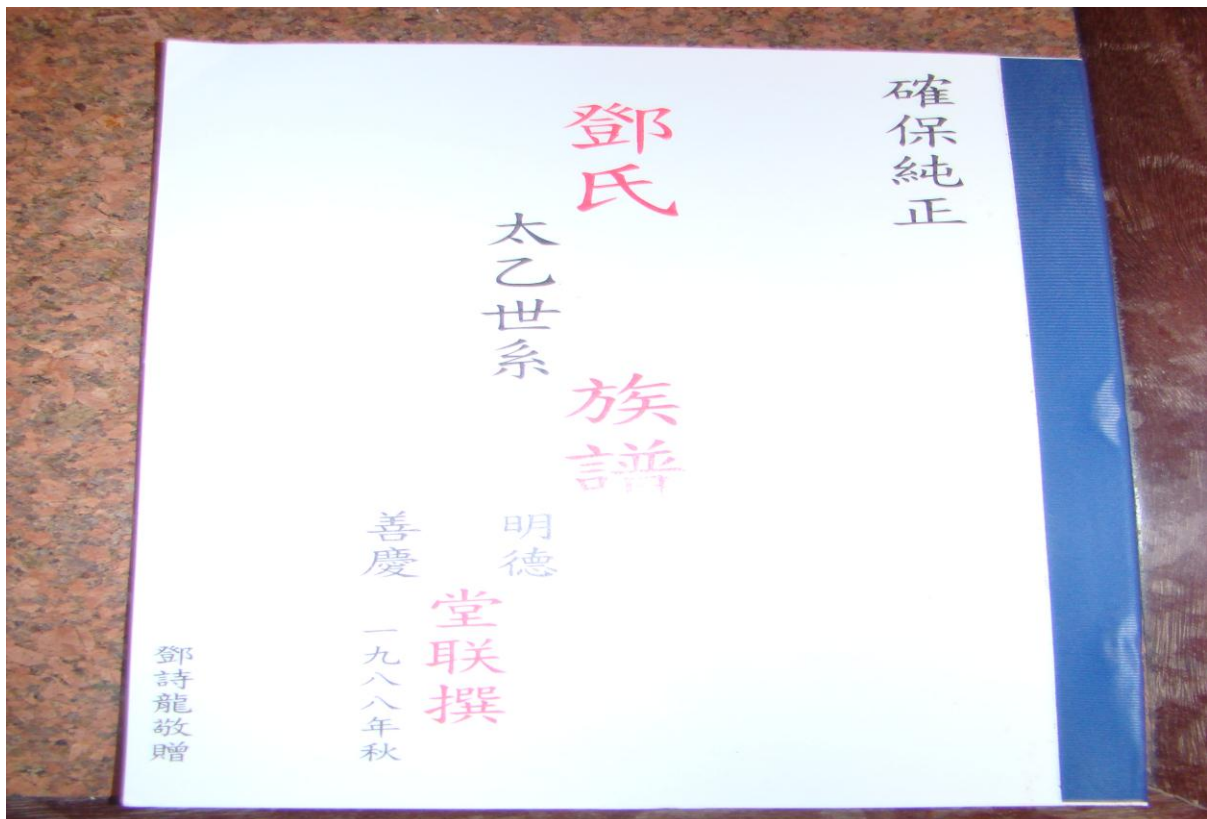 確保純正
鄧氏
族譜
太乙世系
明德
善慶
堂联撰
一九八八年秋
鄧詩龍敬贈